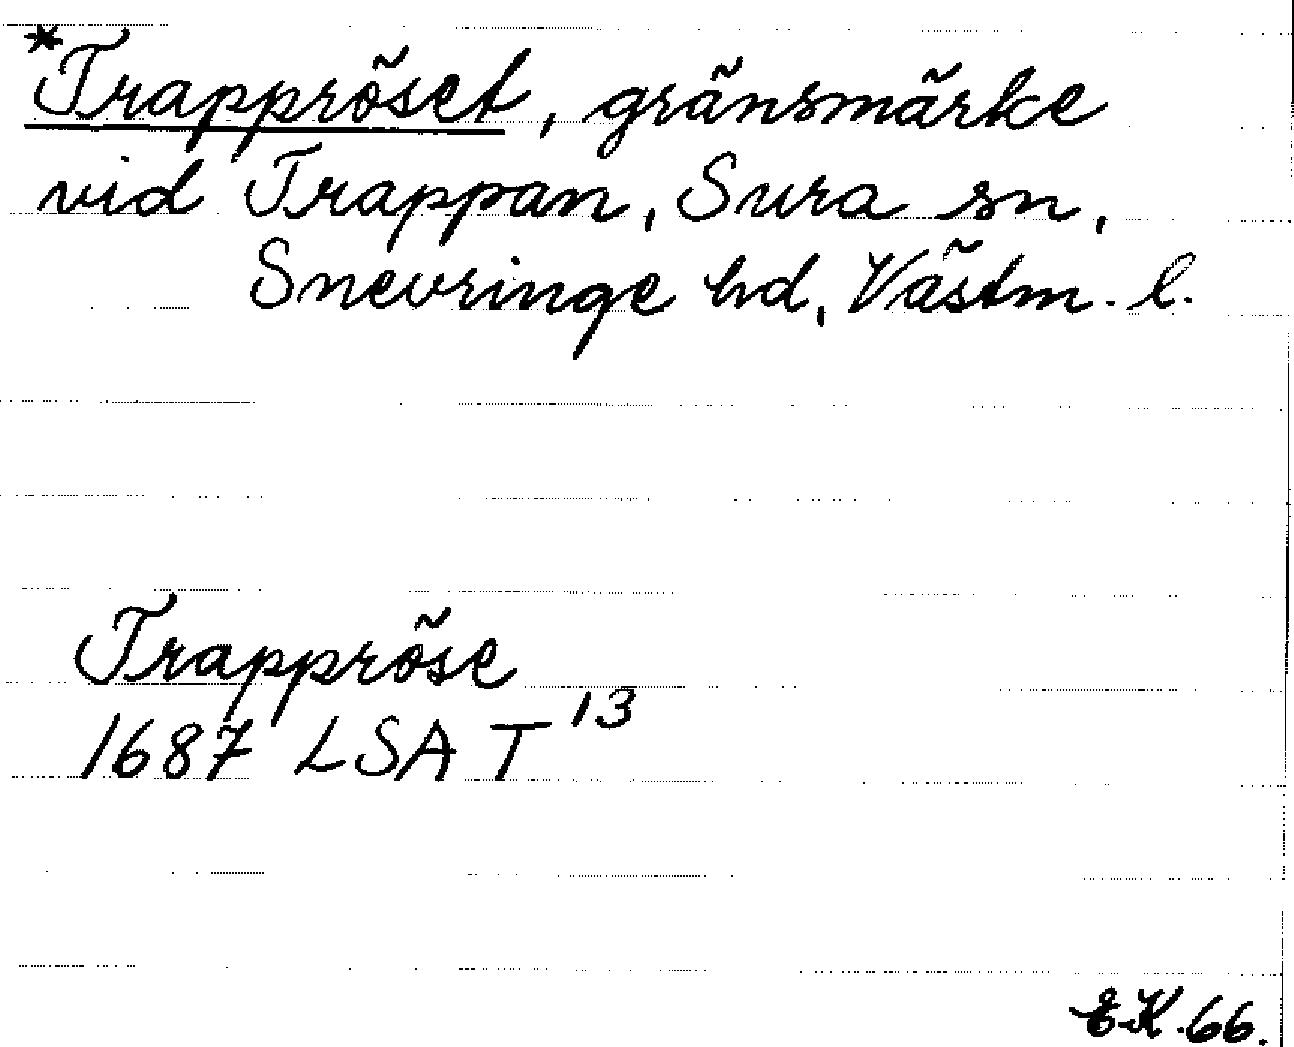 *Trappröset, gränsmärke
vid Trappan, Sura sn,
Snevringe hd, Västm. l.
Trappröse
1687 LSA T 13
E.K. 66.